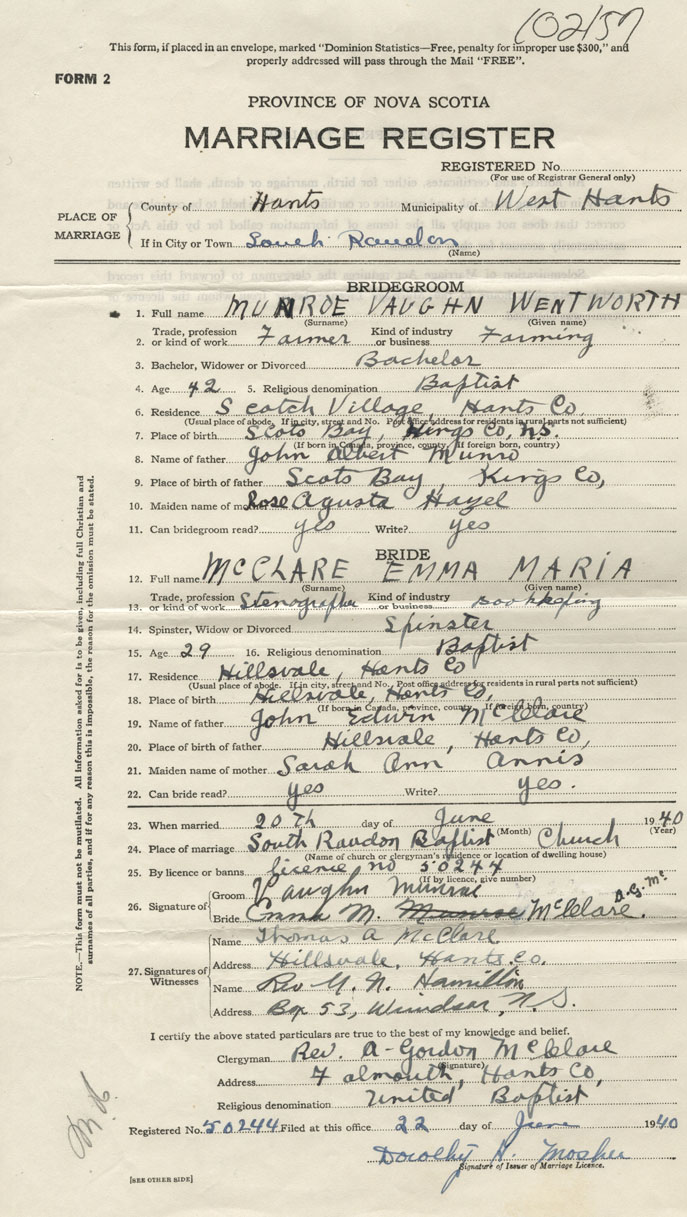 10257
This form, if placed in an envelope, marked "Dominion Statistics—Free, penalty for improper use $300," and
properly addressed will pass through the Mail "FREE".
FORM 2
PROVINCE OF NOVA SCOTIA
MARRIAGE REGISTER
REGISTERED No.
(For use of Registrar General only)
PLACE OF MARRIAGE
County of Hants Municipality of West Hants
If in City or Town South Rawdon
(Name)
BRIDEGROOM
1. Full name MUNROE VAUGHN WENTWORTH
(Surname) (Given name)
2. Trade, profession or kind of work Farmer Kind of industry or business Farming
3. Bachelor, Widower or Divorced Bachelor
4. Age 42 5. Religious denomination Baptist
6. Residence Scotch Village, Hants Co.
(Usual place of abode. If in city, street and No. Post office address for residents in rural parts not sufficient)
7. Place of birth Scots Bay, Kings Co, N.S.
(If born in Canada, province, county. If foreign born, country)
8. Name of father John Albert Munro
9. Place of birth of father Scots Bay, Kings Co,
10. Maiden name of mother Rose Agusta Hayel
11. Can bridegroom read? yes Write? yes
BRIDE
12. Full name McCLARE EMMA MARIA
(Surname) (Given name)
13. Trade, profession or kind of work Stenographer Kind of industry or business Bookkeeping
14. Spinster, Widow or Divorced Spinster
15. Age 29 16. Religious denomination Baptist
17. Residence Hillsvale, Hants Co
(Usual place of abode. If in city, street and No. Post office address for residents in rural parts not sufficient)
18. Place of birth Hillsvale, Hants Co,
(If born in Canada, province, county. If foreign born, country)
19. Name of father John Edwin McClare
20. Place of birth of father Hillsvale, Hants Co,
21. Maiden name of mother Sarah Ann Annis
22. Can bride read? yes Write? yes.
23. When married 20th day of June 1940
(Month) (Year)
24. Place of marriage South Rawdon Baptist Church
(Name of church or clergyman's residence or location of dwelling house)
25. By licence or banns licence no 50244
(If by licence, give number)
26. Signature of
Groom Vaughn Munroe
A.G.Mc
Bride Emma M. Munroe McClare.
27. Signatures of Witnesses
Name Thomas A McClare
Address Hillsvale, Hants. Co.
Name Rev Hamilton
Address Box 53, Windsor, N.S.
I certify the above stated particulars are true to the best of my knowledge and belief.
Clergyman Rev. A-Gordon McClare
(Signature)
Address Falmouth, Hants Co,
Religious denomination United Baptist
Registered No. 50244 Filed at this office 22 day of June 1940
Dorothy Mosher
Signature of Issuer of Marriage Licence.
[SEE OTHER SIDE]
NOTE.—This form must not be mutilated. All information asked for is to be given, including full Christian and
surnames of all parties, and if for any reason this is impossible, the reason for the omission must be stated.